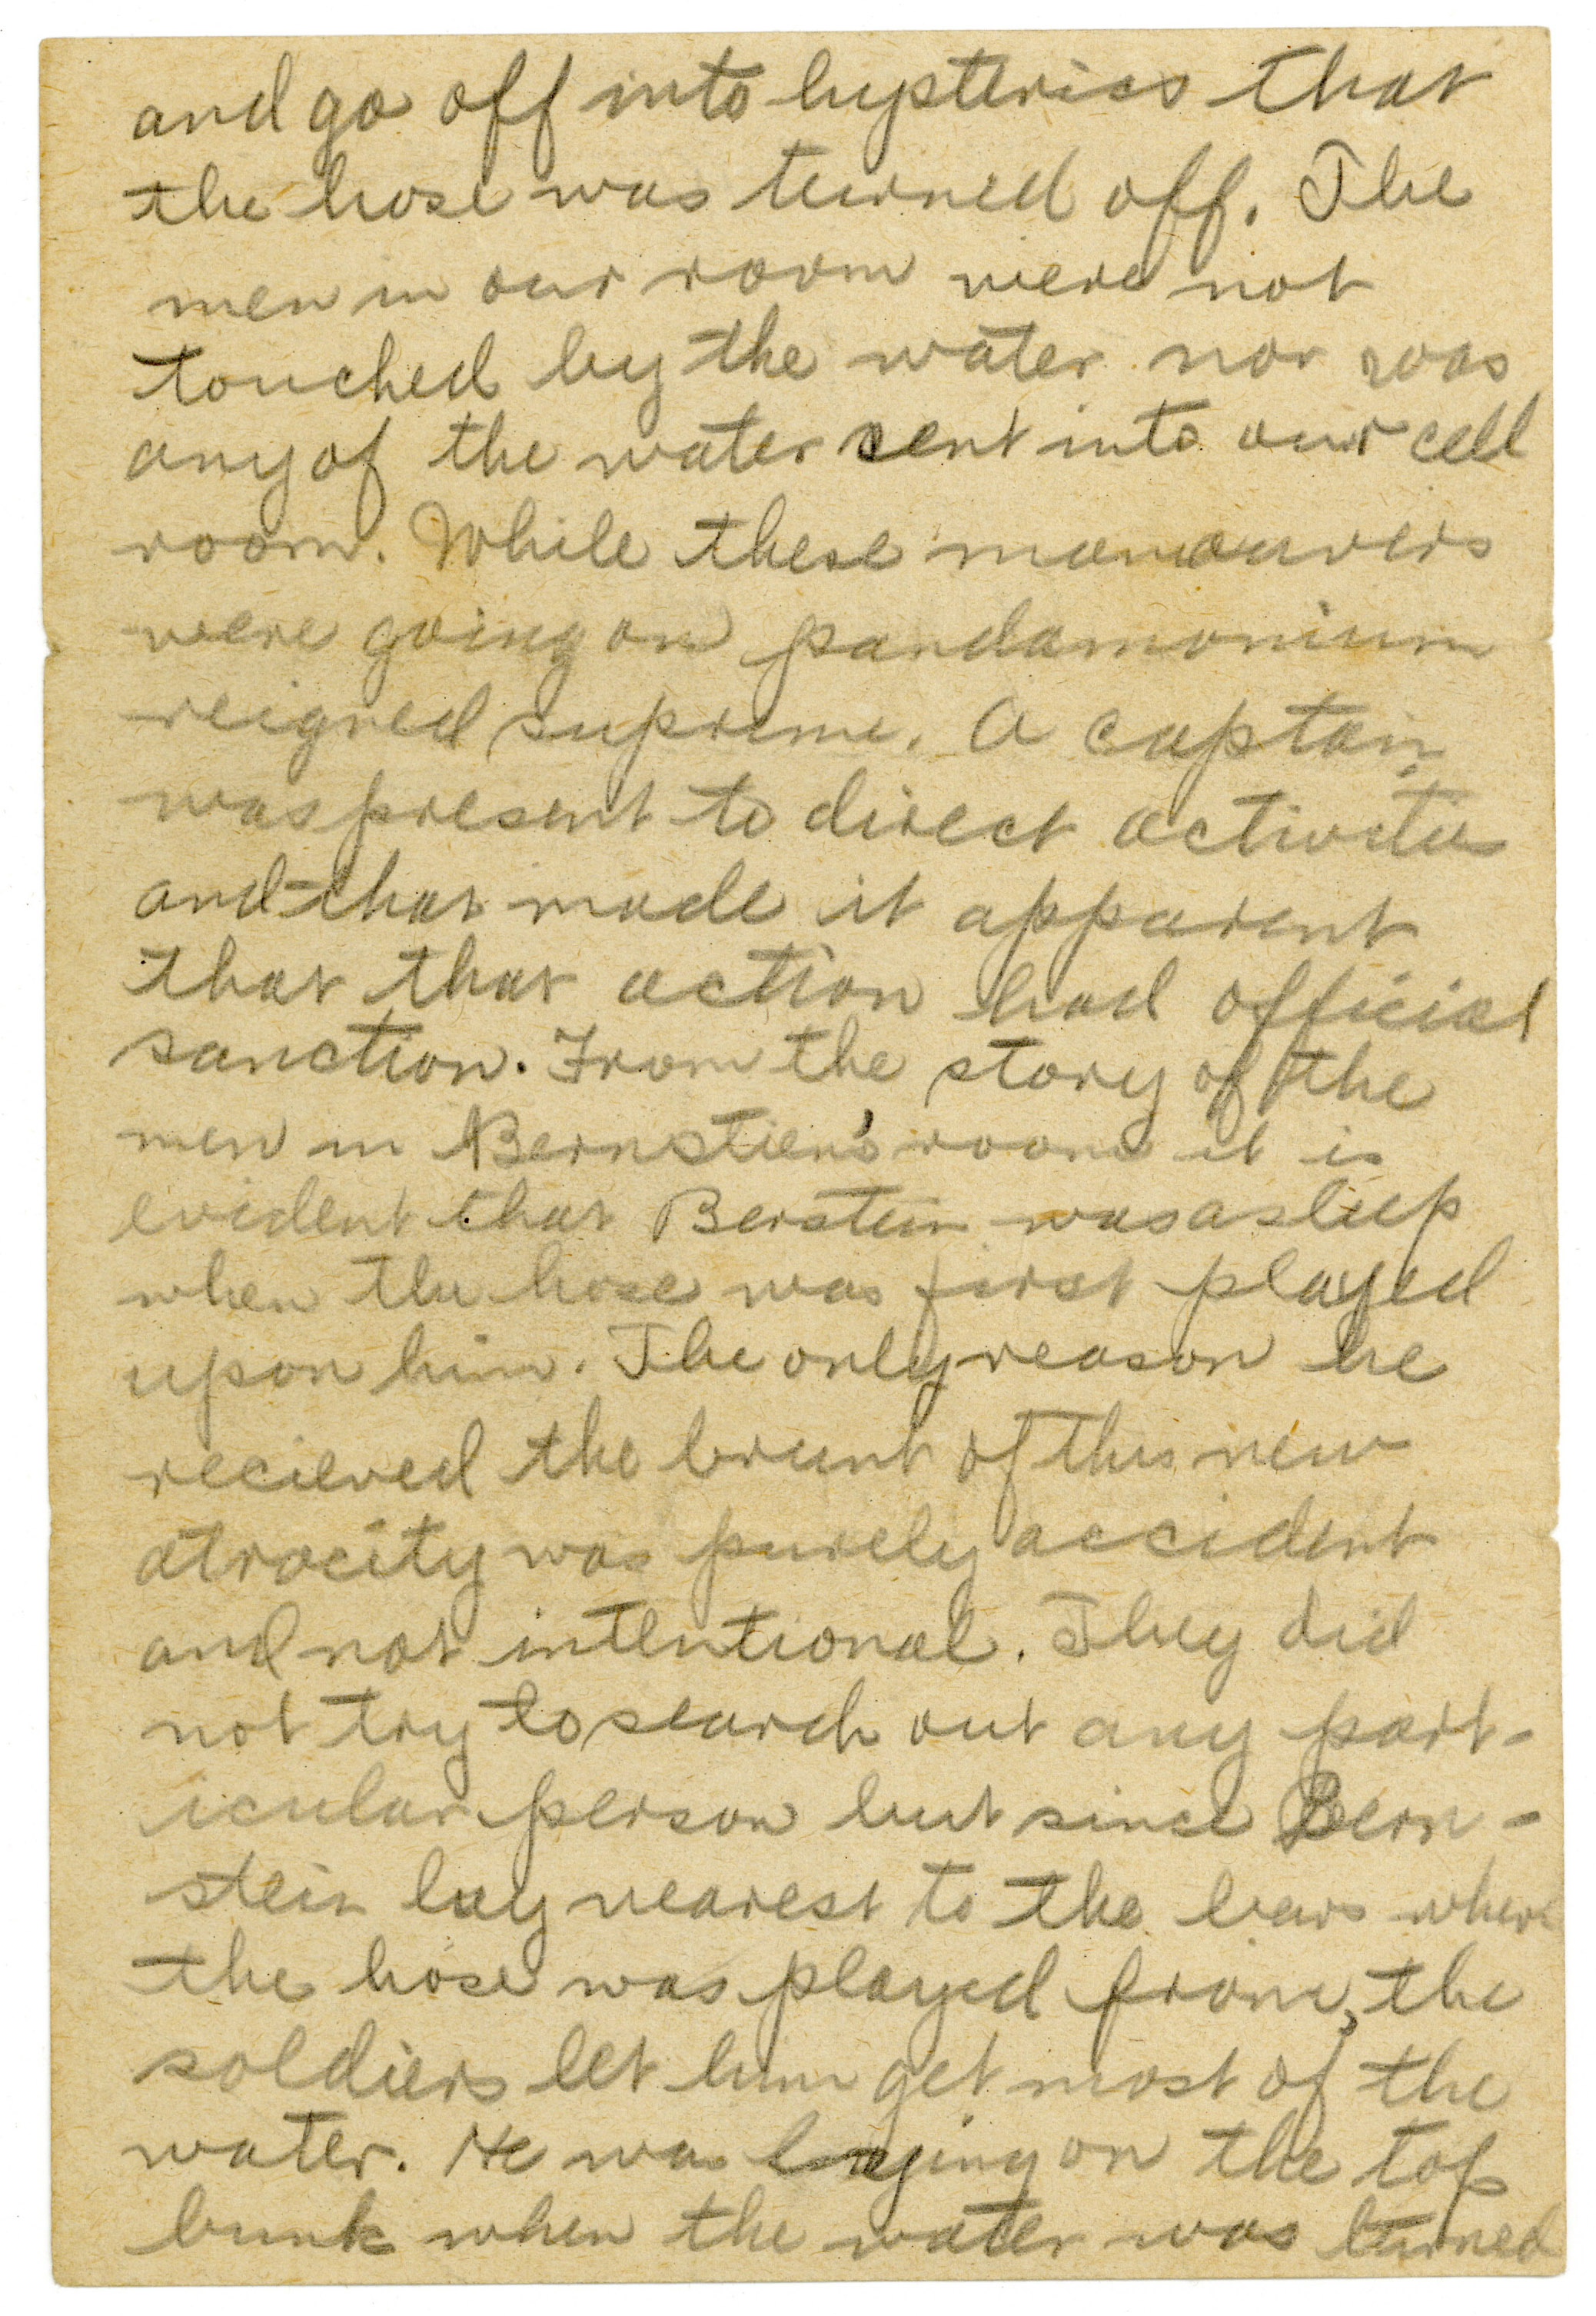 and go off into hysterics that
the hose was turned off. The
men in our room were not
touched by the water nor was
any of the water sent into our cell
room. While these manouvers
were going on pandamonium
reigned supreme. A captain
was present to direct activities
and that made it apparent
that that action had official
sanction. From the story of the
men in Bernstien's room it is
evident that Berstein was asleep
when the hose was first played
upon him. The only reason he
recieved the brunt of this new
atrocity was purely accident
and not intentional. They did
not try to search out any part-
icular person but since Bern-
stein lay nearest to the bars where
the hose was played from, the
soldiers let him get most of the
water. He was laying on the top
bunk when the water was turned